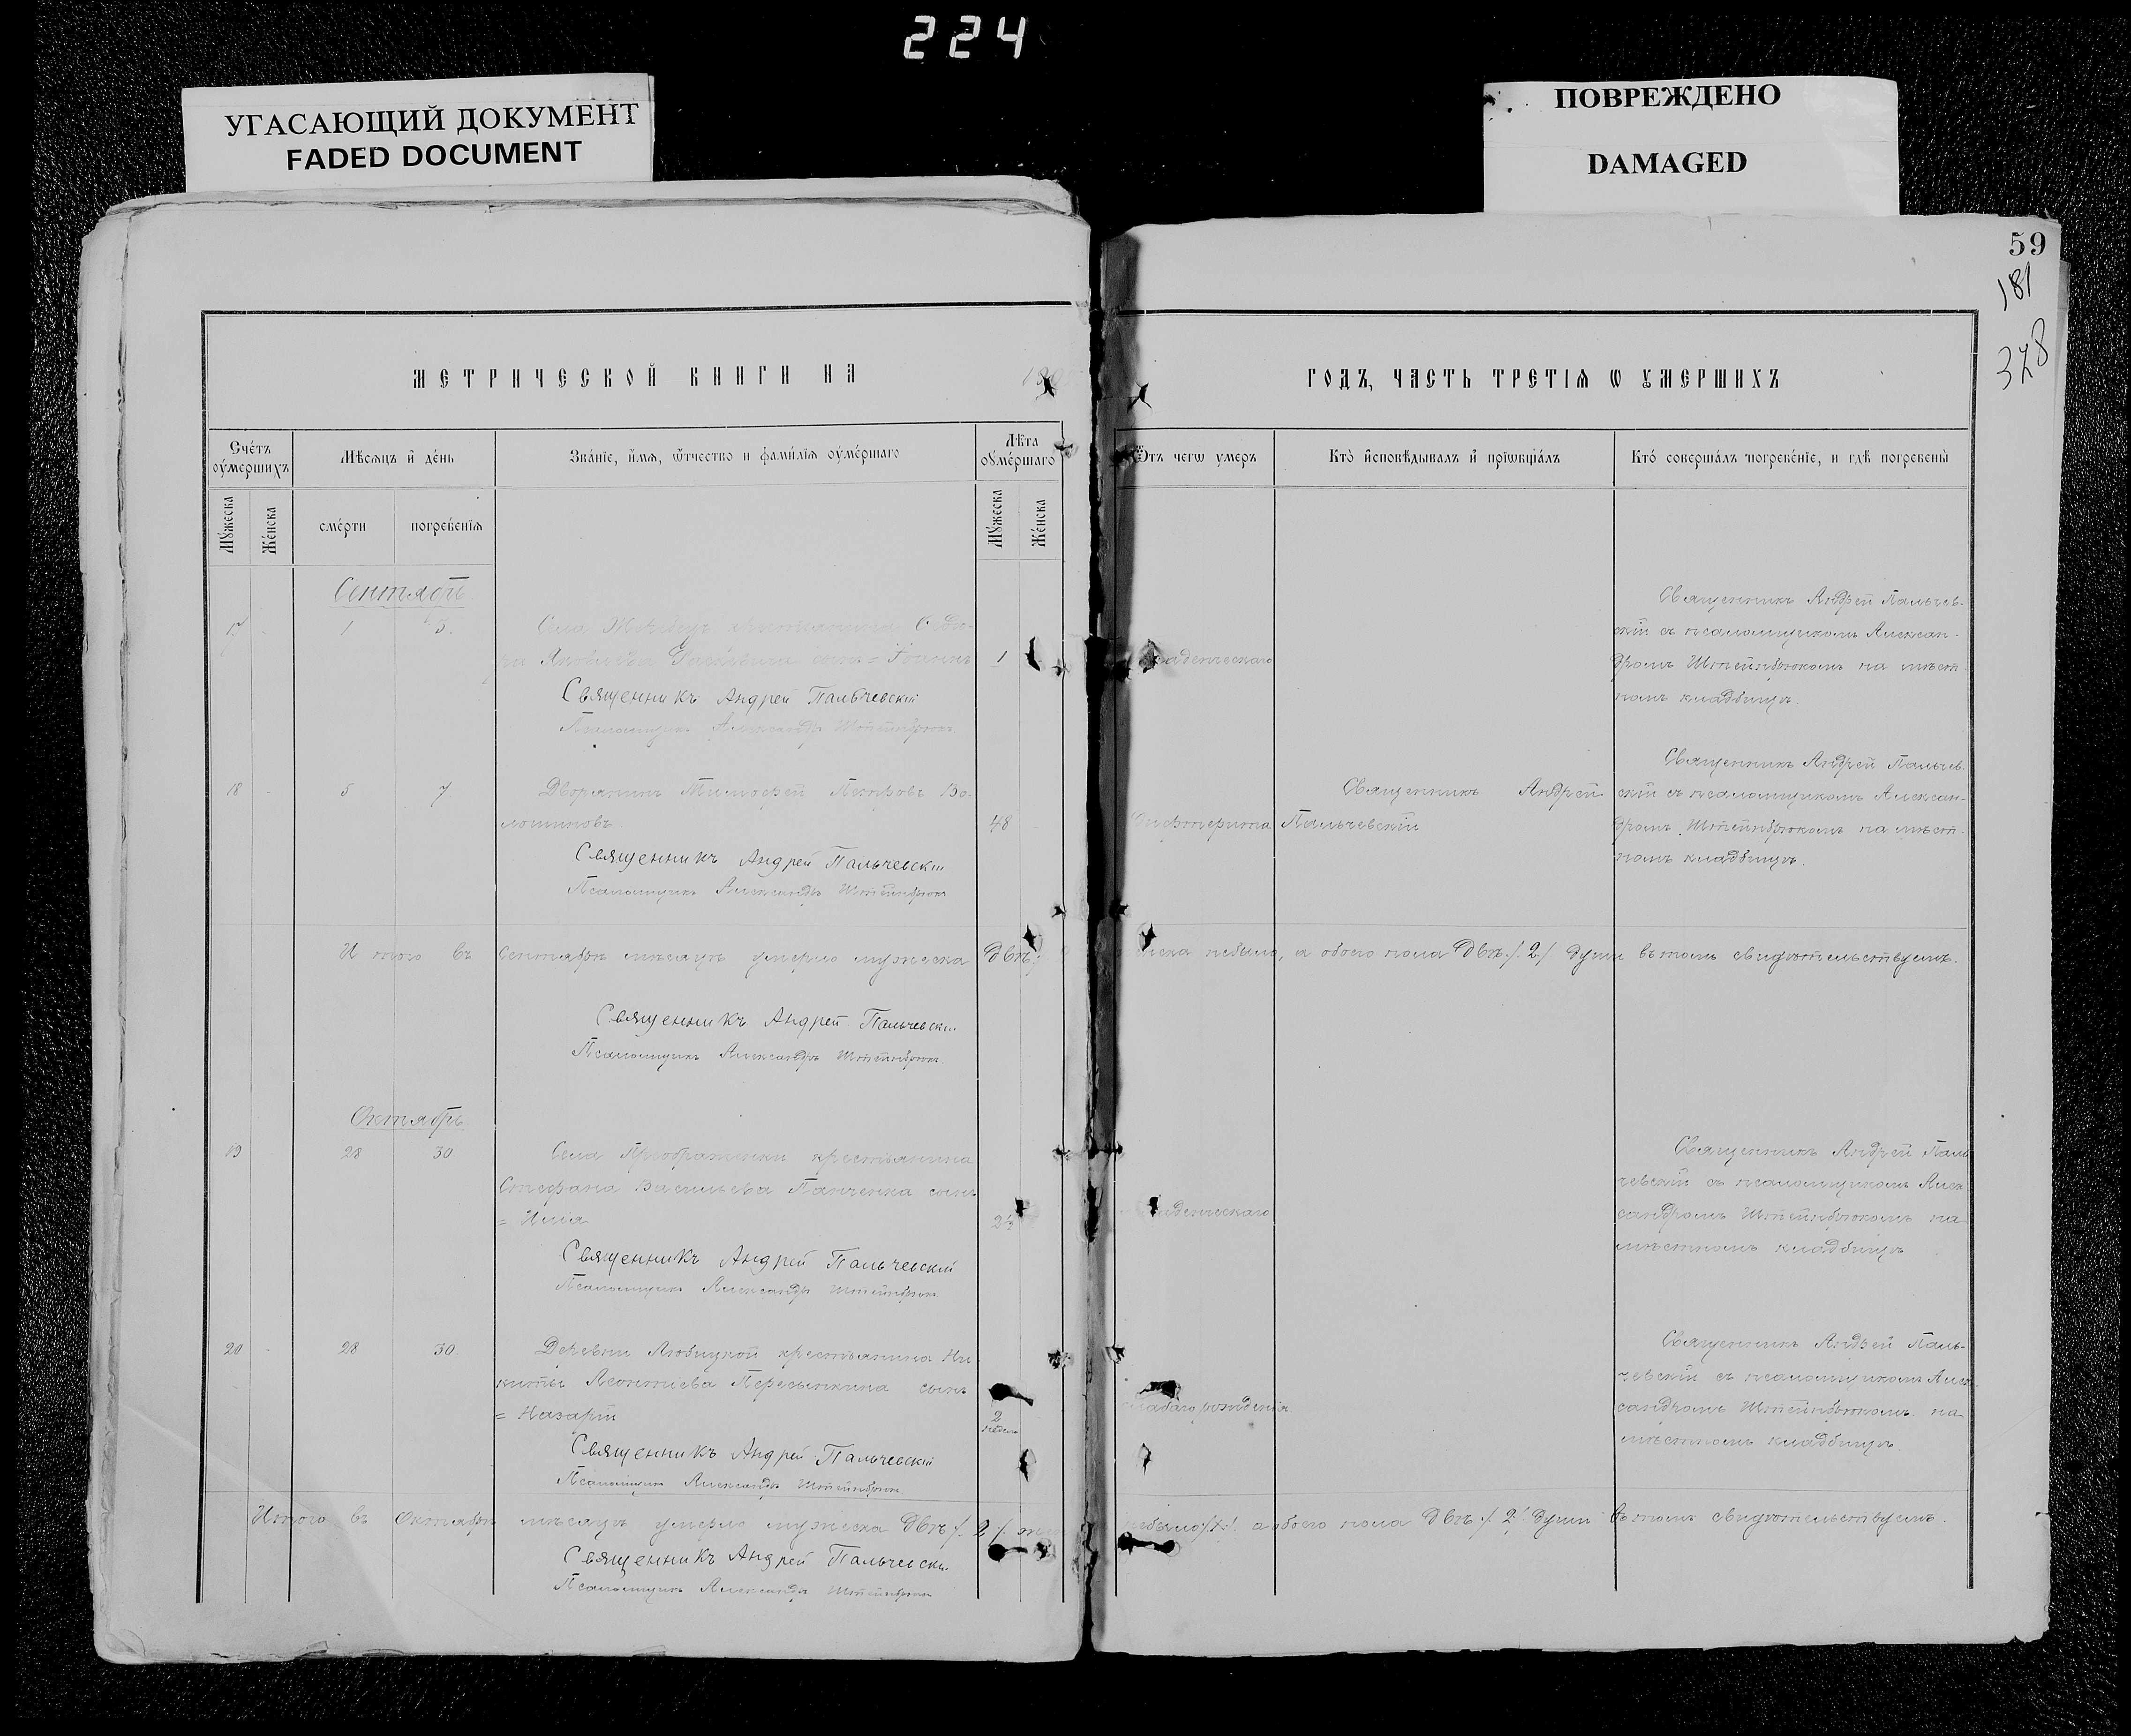 224
УГАСАЮЩИЙ ДОКУМЕНТ
FADED DOCUMENT
ПОВРЕЖДЕНО
DAMAGED
59
181
328
МЕТРИЧЕСКОЙ КНИГИ НА
ГОДЪ, ЧАСТЬ ТРЕТІѦ Ѡ ОУМЕРШИХЪ
Счетъ оумершихъ
Мѣсяцъ и день
Званіе, имя, отчество и фамилія оумершаго
Лѣта оумершаго
Мужеска
Женска
смерти
погребенія
Мужеска
Женска
Отъ чегѡ умеръ
Кто исповѣдывалъ и пріѡбщалъ
Кто совершалъ погребеніе, и гдѣ погребены
Сентябрь
17 - 1 3.
Села крестьянина
Яковлева сынъ = Іоаннъ 1
Священникъ Андрей Пальчевскій
Псаломщикъ Александръ Штейнбрюкъ
Священникъ Андрей Пальчев-
скій съ псаломщикомъ Алексан-
дромъ Штейнбрюкомъ на мѣст-
номъ кладбищѣ.
18 - 5 7
Дворянинъ Тимофей Петровъ Во-
лошиновъ 48
Священникъ Андрей Пальчевскій
Псаломщикъ Александръ Штейнбрюкъ
Священникъ Андрей
Пальчевскій
Священникъ Андрей Пальчев-
скій съ псаломщикомъ Алексан-
дромъ Штейнбрюкомъ на мѣст-
номъ кладбищѣ.
Итого въ Сентябрѣ мѣсяцѣ умерло мужеска двѣ небыло, а обоего пола двѣ /2/ души въ томъ свидѣтельствуемъ.
Священникъ Андрей Пальчевскій
Псаломщикъ Александръ Штейнбрюкъ
Октябрь
19 28 30
Села Преображенки крестьянина
Стефана Васильева Панченка сынъ
= Илія
Священникъ Андрей Пальчевскій
Псаломщикъ Александръ Штейнбрюкъ
Священникъ Андрей Паль
чевскій съ псаломщикомъ Алек
сандромъ Штейнбрюкомъ на
мѣстномъ кладбищѣ
20 - 28 30
Деревни крестьянина Ни-
киты Леонтіева Пересыпкина сынъ
= Назарій 2
Священникъ Андрей Пальчевскій
Псаломщикъ Александръ Штейнбрюкъ
слабаго рожденія
Священникъ Андрей Паль-
чевскій съ псаломщикомъ Алек-
сандромъ Штейнбрюкомъ на
мѣстномъ кладбищѣ.
Итого въ Октябрѣ мѣсяцѣ умерло мужеска двѣ /2/ небыло а обоего пола двѣ /2/ души въ томъ свидѣтельствуемъ.
Священникъ Андрей Пальчевскій
Псаломщикъ Александръ Штейнбрюкъ